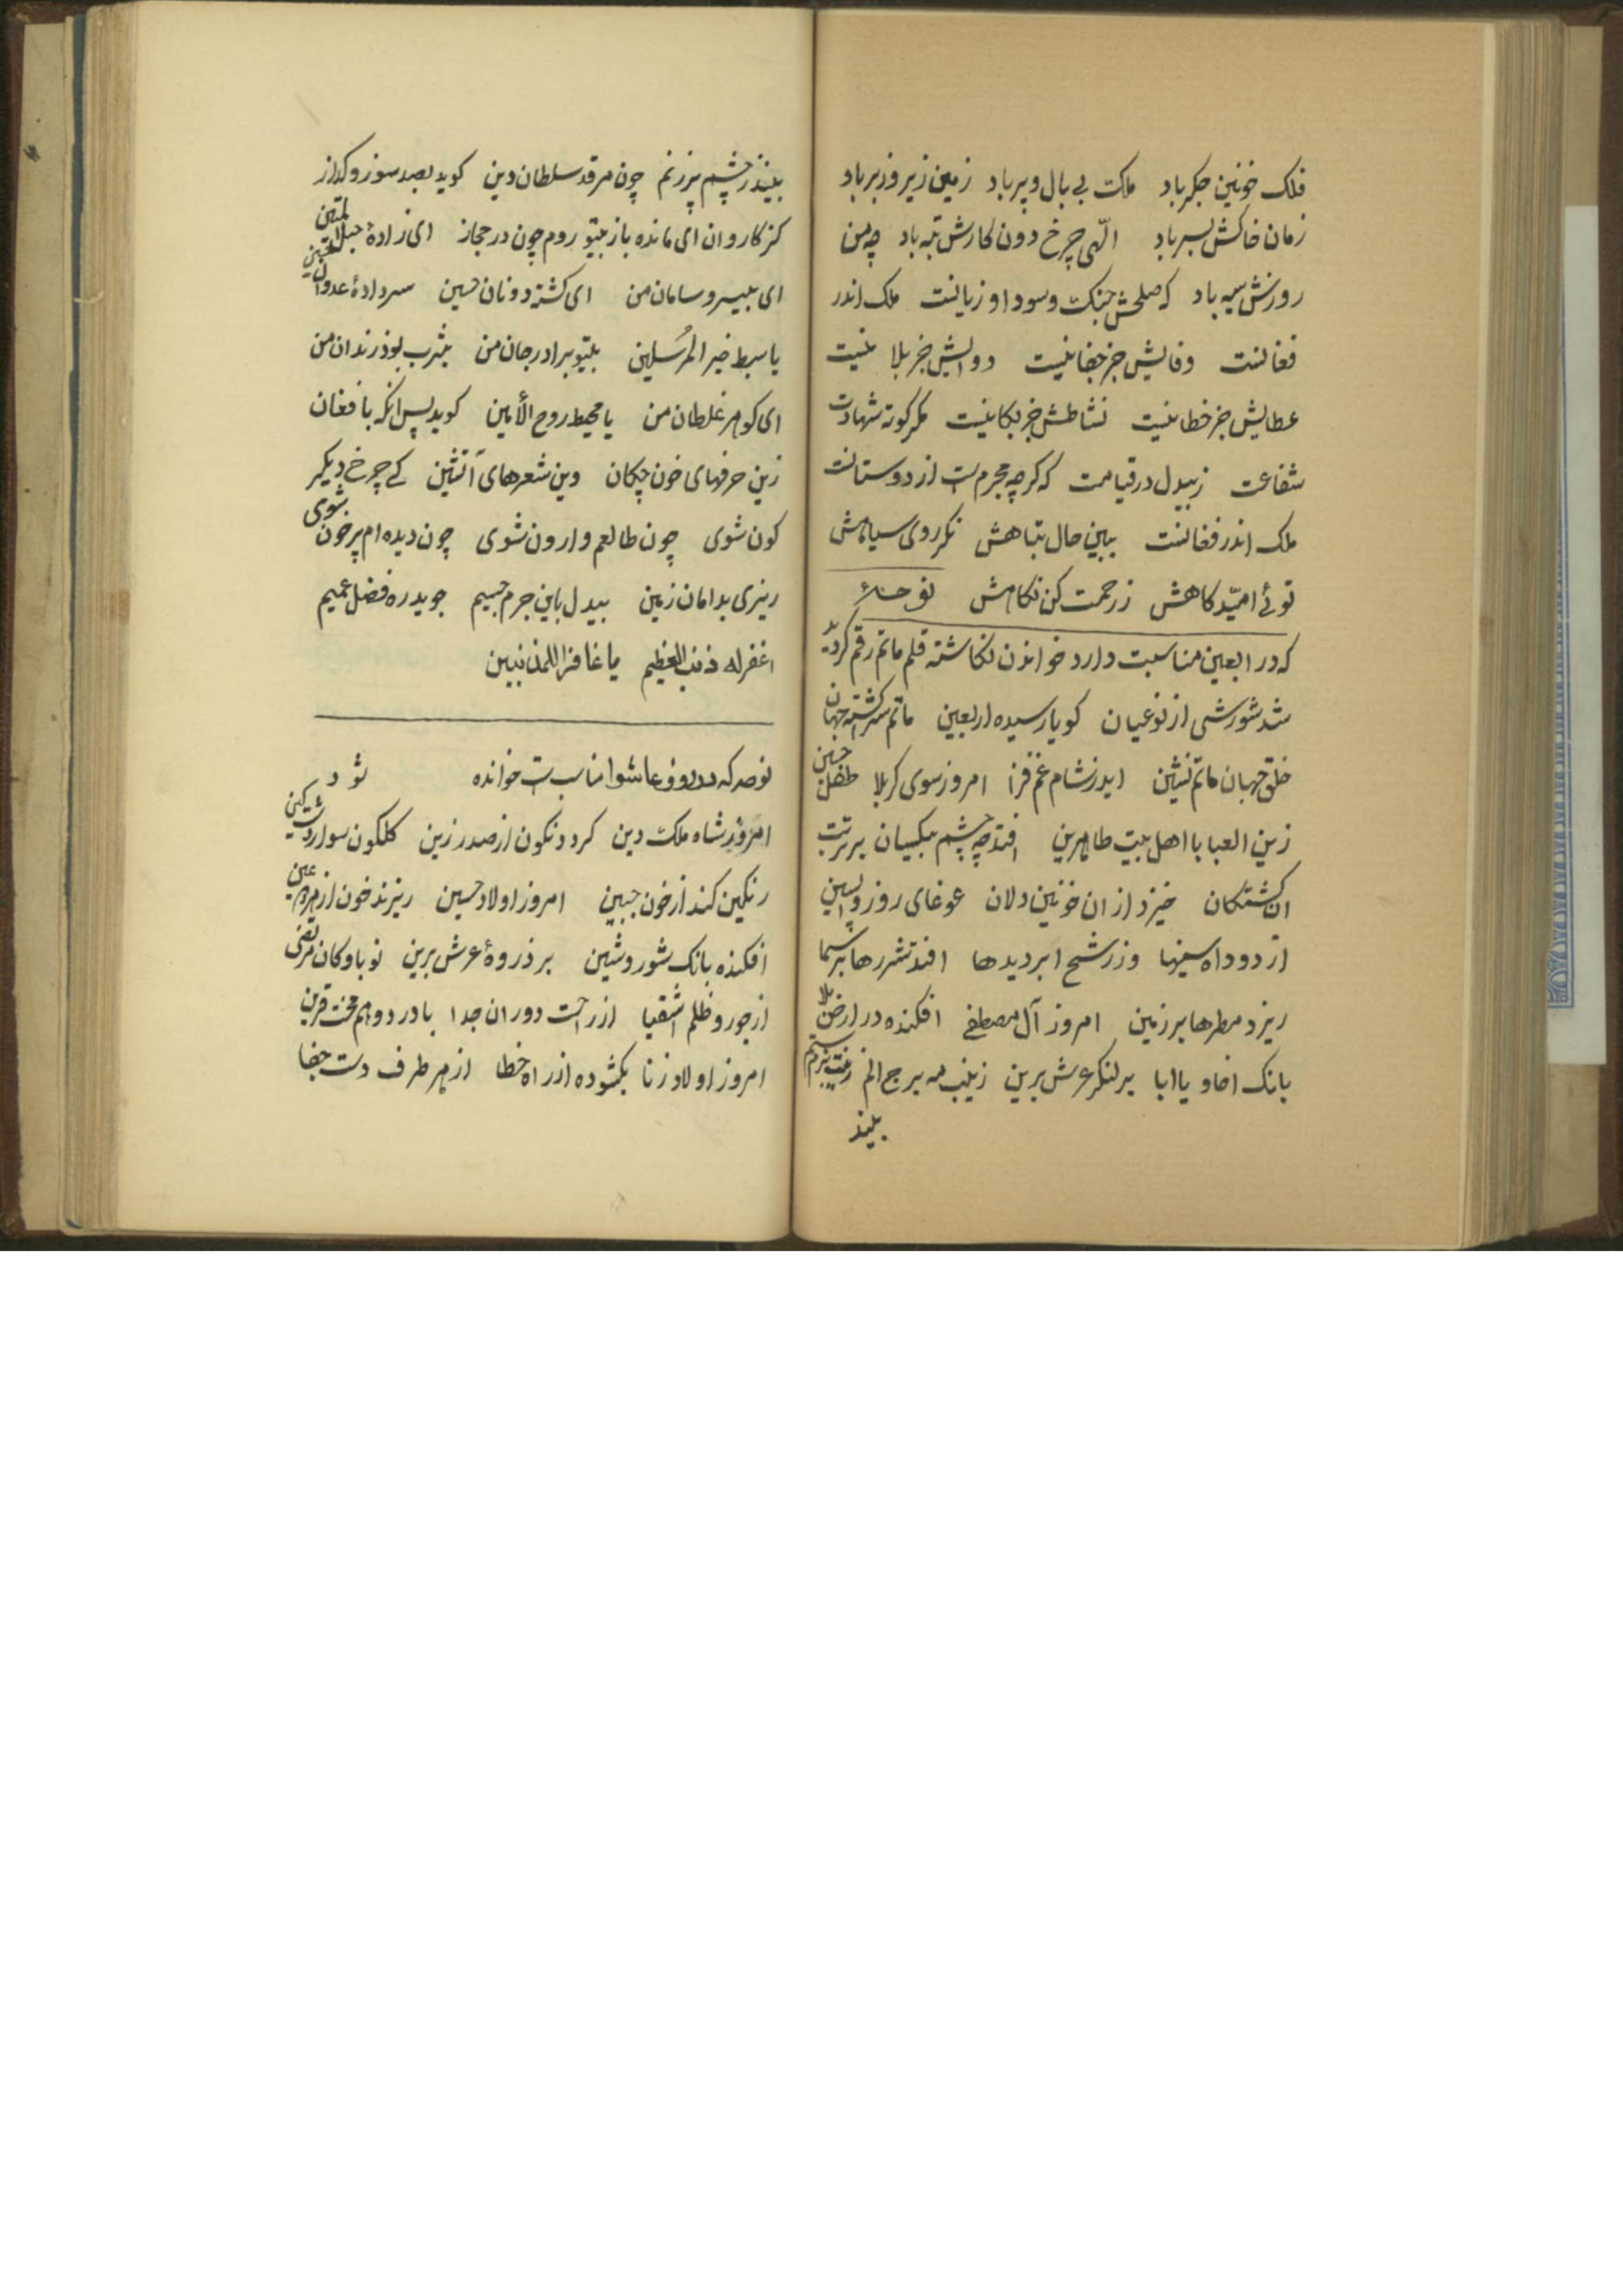 فلک خونین جکر باد ملک بی بال و پر باد زمین زیر و زبر باد
زمان خاکش بسر باد الهی چرخ دون کارش تبه باد چه من
روزش سیه باد که صلحش جنک و سود او زیانست ملک اندر
فغانست وفایش جز جفا نیست دوایش جز بلا نیست
عطایش جز خطا نیست نشاطش جز بکا نیست مکر کوته شهادت
شفاعت ز بیدل در قیامت که کرچه مجرم است از دوستانت
ملک اندر فغانست ببین حال تباهش نکر روی سیاهش
توئی امیّد کاهش ز رحمت کن نکاهش نوحهٔ
که در اربعین مناسبت دارد خواندن نکاشته قلم ماتم رقم کردید
شد شورشی از نو عیان کویا رسیده اربعین ماتم سرا کشته جهان
خلق جهان ماتم نشین اید ز شام غم فزا امروز سوی کربلا طفل حسین
زین العبا با اهل بیت طاهرین افتد چه چشم بیکسان بر تربت
ان کشتکان خیزد از ان خونین دلان غوغای روز واپسین
از دود اه سینها وز رشح ابر دیدها افتد شررها بر سما
ریزد مطرها بر زمین امروز آل مصطفی افکنده در ارض بلا
بانک اخا و یا ابا بر کنکر عرش برین زینب مه برج الم
بیند
بیند ز چشم پر ز نم چون مرقد سلطان دین کوید بصد سوز و کداز
کز کاروان ای مانده باز بیتو روم چون در حجاز ای زادهٔ حبل المتین
ای بیسر و سامان من ای کشته دونان حسین سر دادهٔ عدوان
یا سبط خیر المرُسلین بیتو برادر جان من یثرب بود زندان من
ای کوهر غلطان من یا محیط روح الأمین کوید پس انکه با فغان
زین حرفهای خون چکان وین شعرهای آتشین کے چرخ دیکر
کون شوی چون طالعم وارون شوی چون دیده ام پر خون شوی
ریزی بدامان زمین بیدل باین جرم جسیم جوید ره فضل عمیم
اغفر له ذنب العظیم یا غافرا للمذنبین
نوحه که در روز عاشورا مناسب است خوانده شود
امروز شاه ملک دین کردد نکون از صدر زین کلکون سوار دشت کین
رنکین کند از خون جبین امروز اولاد حسین ریزند خون از هر دو عین
افکنده بانک شور و شین بر ذروهٔ عرش برین نوباوکان مرتضی
از جور و ظلم اشقیا از راحت دوران جدا با درد و هم محنت قرین
امروز اولاد زنا بکشوده از راه خطا از هر طرف دست جفا